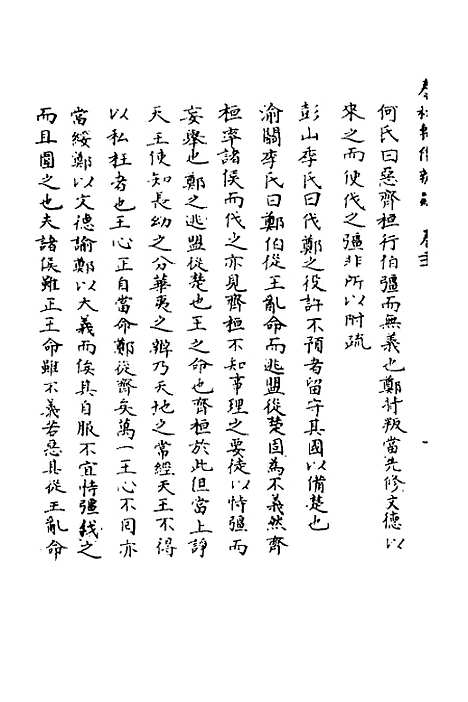 春秋
何氏曰惡齊桓行伯彊而無義也鄭背叛當先修文德以
來之而使伐之彊非所以附疏
彭山季氏曰伐鄭之役許不預者留守其國以備楚也
渝關李氏曰鄭伯從王亂命而逃盟從楚固為不義然齊
桓率諸侯而伐之亦見齊桓不知事理之要徒以恃彊而
妄舉也鄭之逃盟從楚也王之命也齊桓於此但當上諍
天王使知長幼之分華夷之辨乃天地之常經天王不得
以私枉者也王心正自當命鄭從齊矣萬一王心不回亦
當綏鄭以文德諭鄭以大義而俟其自服不宜恃彊伐之
而且圍之也夫諸侯雖正王命雖不義若惡其從王亂命